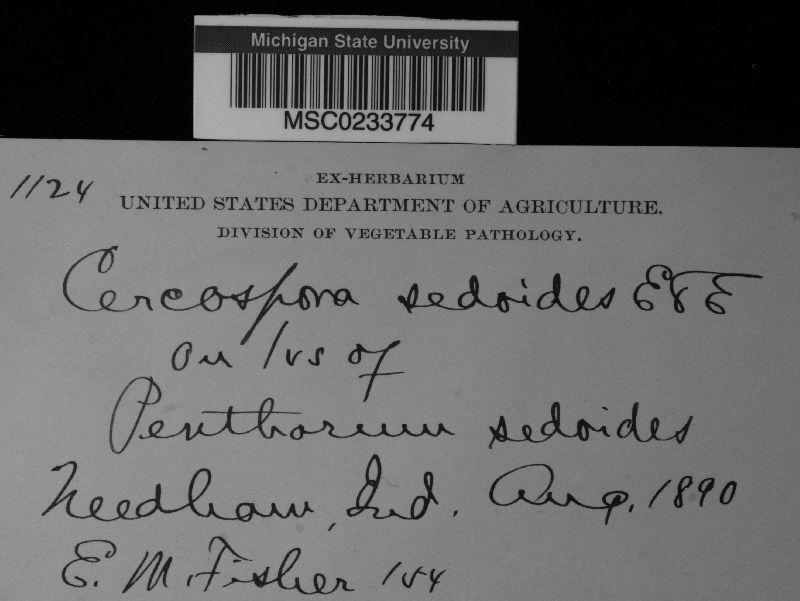 Michigan State University
MSC0233774
1124
EX-HERBARIUM
UNITED STATES DEPARTMENT OF AGRICULTURE.
DIVISION OF VEGETABLE PATHOLOGY.
Cercospora sedoides E & E
on lvs of
Penthorum sedoides
Needham, Ind. Aug. 1890
E. M. Fisher 154